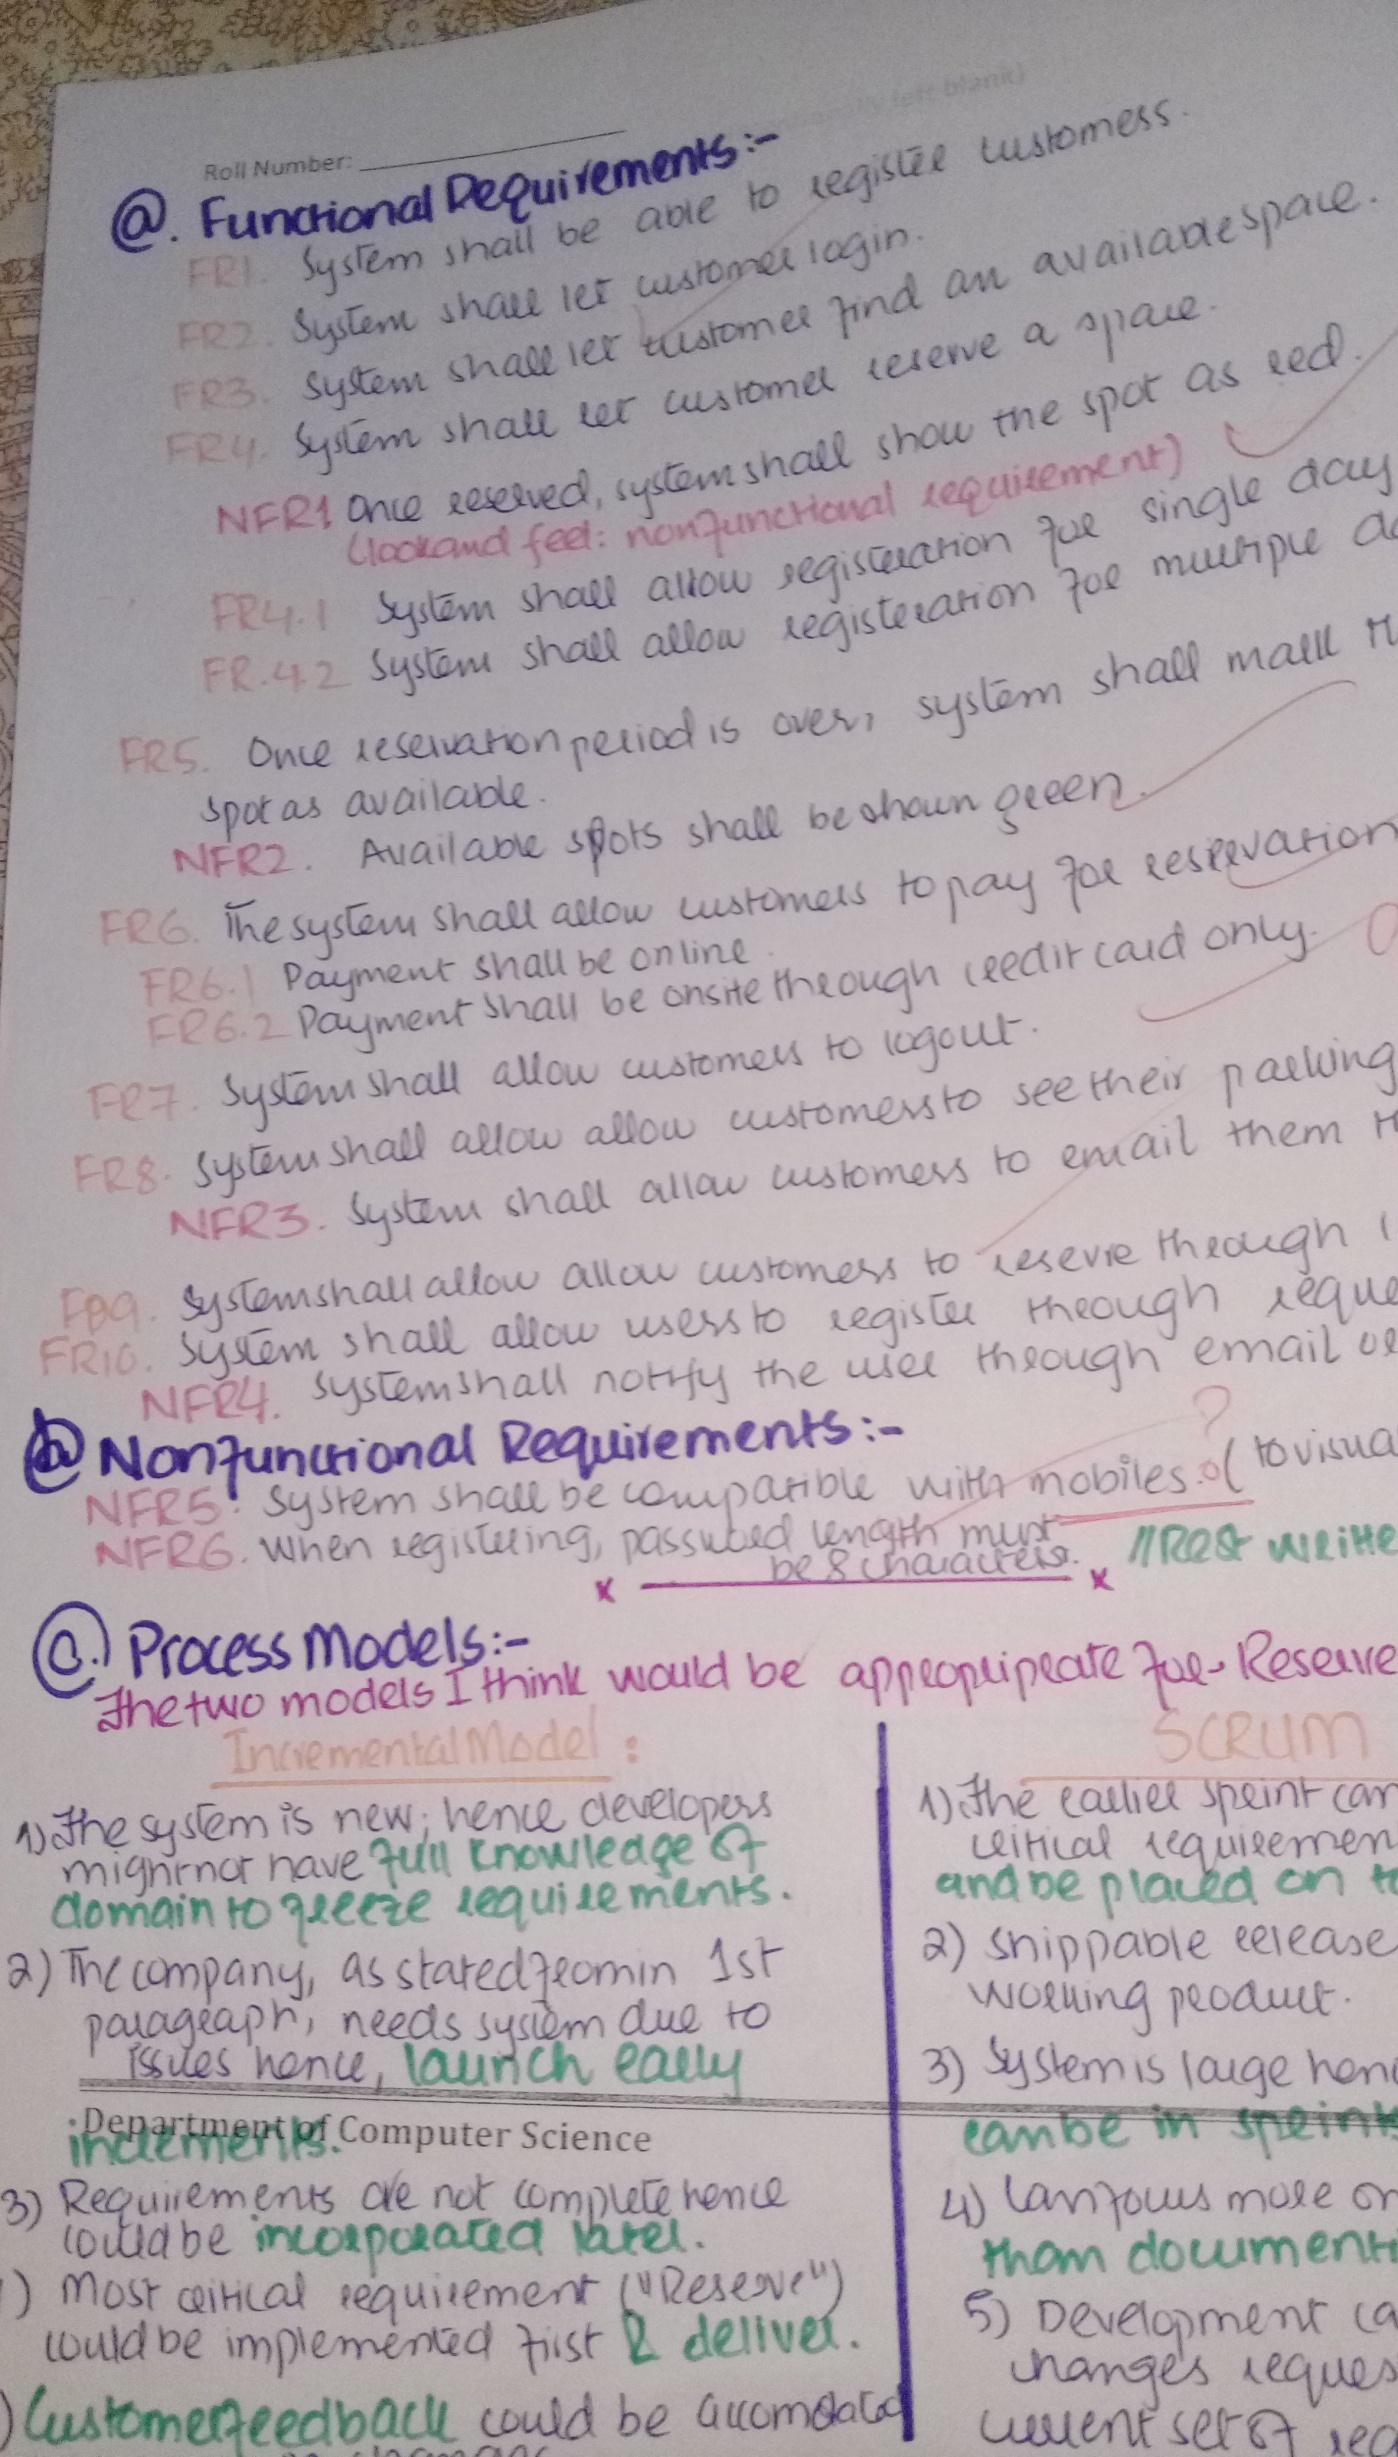 Roll Number:
left blank)
a. Functional Requirements:-
FR1. System shall be able to register customers.
FR2. System shall let customer login.
FR3. System shall let customer find an available space.
FR4. System shall let customer reserve a space.
NFR1 Once reserved, system shall show the spot as red.
(look and feel: nonfunctional requirement)
FR4.1 System shall allow registeration for single day
FR.4.2 System shall allow registeration for multiple da
FR5. Once reservation period is over, system shall mark th
spot as available.
NFR2. Available spots shall be shown green.
FR6. The system shall allow customers to pay for reservation
FR6.1 Payment shall be online.
FR6.2 Payment shall be onsite through credit card only.
FR7. System shall allow customers to logout.
FR8. System shall allow allow customers to see their parking
NFR3. System shall allow customers to email them th
FR9. System shall allow allow customers to reserve through
FR10. System shall allow users to register through reque
NFR4. System shall notify the user through email or
?
b Nonfunctional Requirements:-
NFR5: System shall be compatible with mobiles. (to visua
NFR6. When registering, password length must
be 8 characters. //Rest writte
C. Process Models:-
The two models I think would be appropripeate for Reserve
Incremental Model:
1) The system is new; hence developers
might not have full knowledge of
domain to freeze requirements.
2) The company, as stated from in 1st
paragraph, needs system due to
issues hence, launch early
increments.
Department of Computer Science
3) Requirements are not complete hence
could be incorporated later.
) Most critical requirement ("Reserve")
could be implemented first & deliver.
) Customer feedback could be accomodated
SCRUM
1) The earlier sprint can
critical requiremen
and be placed on to
2) Shippable release
working product.
3) System is large henc
can be in sprints
4) Can focus more on
than documenti
5) Development ca
changes reques
current set of req